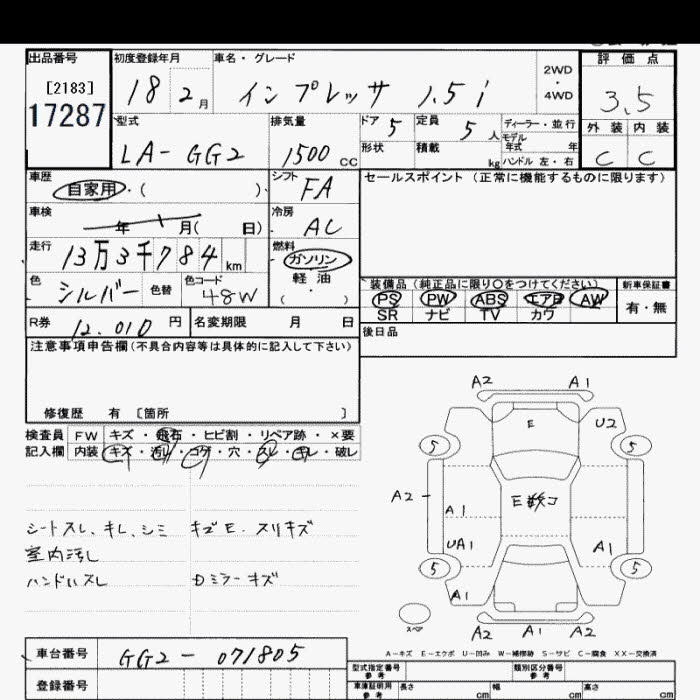 出品番号 初度登録年月 車名・グレード 評価点
[2183] 18 2月 インプレッサ 1.5i 2WD・4WD 3.5
17287
型式 排気量 ドア 5 定員 5人 ディーラー・並行 外装 内装
LA-GG2 1500cc 形状 積載 kg モデル年式 年 C C
ハンドル 左・右
車歴 シフト セールスポイント (正常に機能するものに限ります)
自家用・( ) FA
車検 年 月( 日) 冷房 AC
走行 13万3千784km 燃料 ガソリン
軽油
( )
色 シルバー 色替 色コード 48W
装備品 (純正品に限り〇をつけてください) 新車保証書
PS PW ABS エアB AW 有・無
SR ナビ TV カワ
R券 12.010円 名変期限 月 日
後日品
注意事項申告欄(不具合内容等は具体的に記入して下さい)
修復歴 有 〔箇所 〕
検査員 FW キズ・飛石・ヒビ割・リペア跡・×要
記入欄 内装 キズ・汚レ・コゲ・穴・スレ・キレ・破レ
シートスレ、キレ、シミ キズE.スリキズ
室内汚レ
ハンドルスレ Dミラーキズ
A2 A1
E U2
5 5
A2 A1
UA1 A1
5 5
A1
スペア
A2 A1 A2
A-キズ E-エクボ U-凹み W-補修跡 S-サビ C-腐食 XX-交換済
車台番号 GG2-071805
登録番号
型式指定番号 参考 類別区分番号 参考
車庫証明用 参考 長さ cm 幅 cm 高さ cm